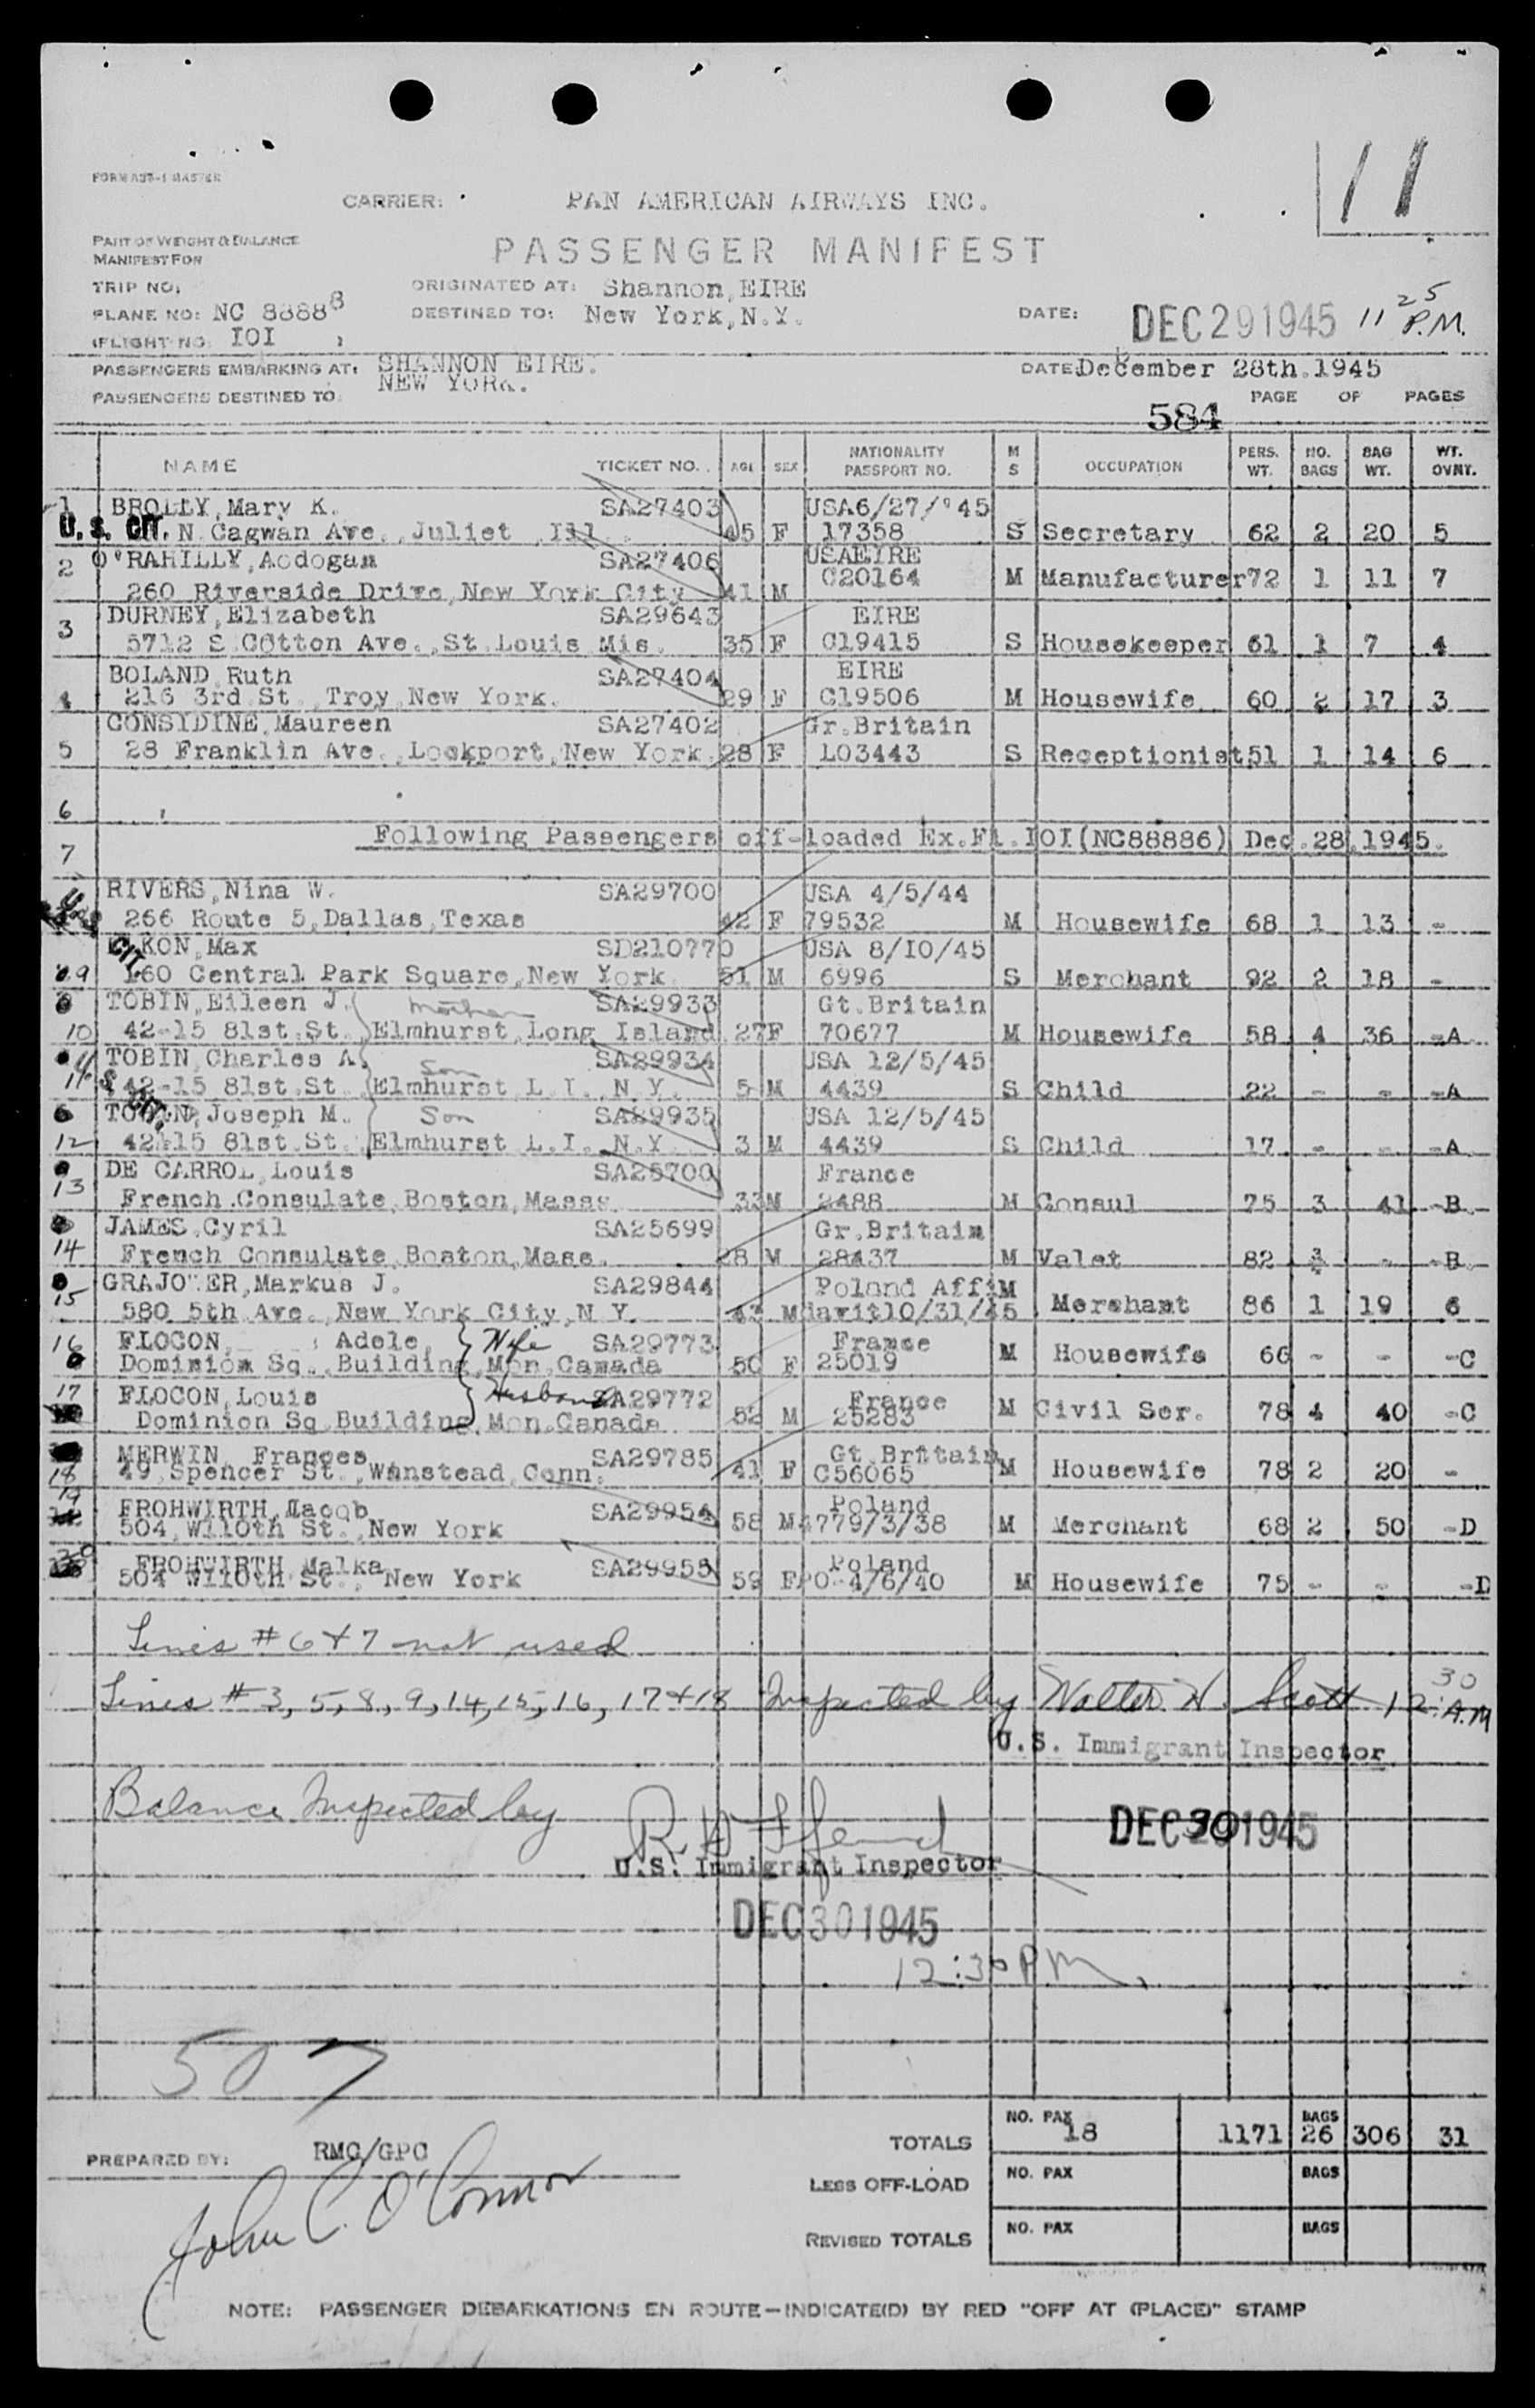 FORM AST-1 MASTER
11
CARRIER: PAN AMERICAN AIRWAYS INC.
PART OF WEIGHT & BALANCE
MANIFEST FOR
PASSENGER MANIFEST
TRIP NO:
ORIGINATED AT: Shannon, EIRE
PLANE NO: NC 88888
DESTINED TO: New York, N.Y.
DATE: DEC 29 1945 11 25 P.M.
(FLIGHT NO: IOI )
PASSENGERS EMBARKING AT: SHANNON EIRE.
DATE: December 28th.1945
PASSENGERS DESTINED TO: NEW YORK.
PAGE OF PAGES
584
NAME TICKET NO. AGE SEX NATIONALITY PASSPORT NO. M S OCCUPATION PERS. WT. NO. BAGS BAG WT. WT. OVNT.
1 BROLLY, Mary K. SA27403 USA6/27/'45
U.S. CIT. N. Cagwan Ave., Juliet, Ill. 45 F 17358 S Secretary 62 2 20 5
2 O'RAHILLY, Aodogan SA27406 USAEIRE
260 Riverside Drive, New York City 41 M C20164 M Manufacturer 72 1 11 7
3 DURNEY, Elizabeth SA29643 EIRE
5712 S Cotton Ave., St. Louis Mis. 35 F C19415 S Housekeeper 61 1 7 4
BOLAND, Ruth SA27404 EIRE
4 216 3rd St., Troy, New York. 29 F C19506 M Housewife 60 2 17 3
CONSYDINE, Maureen SA27402 Gr.Britain
5 28 Franklin Ave., Lockport, New York. 28 F LO3443 S Receptionist 51 1 14 6
6
7 Following Passengers off-loaded Ex.Fl.IOI(NC88886) Dec.28,1945.
RIVERS, Nina W. SA29700 USA 4/5/44
266 Route 5, Dallas, Texas 42 F 79532 M Housewife 68 1 13 -
CIT. KON, Max SD210770 USA 8/10/45
9 160 Central Park Square, New York 51 M 6996 S Merchant 92 2 18 -
TOBIN, Eileen J. mother SA29933 Gt.Britain
10 42-15 81st.St. Elmhurst, Long Island 27 F 70677 M Housewife 58 4 36 -A
TOBIN, Charles A. Son SA29934 USA 12/5/45
11 42-15 81st.St. Elmhurst L.I., N.Y. 5 M 4439 S Child 22 - - -A
TOBIN, Joseph M. Son SA29935 USA 12/5/45
12 42-15 81st.St. Elmhurst L.I., N.Y. 3 M 4439 S Child 17 - - -A
DE CARROL, Louis SA25700 France
13 French Consulate, Boston, Mass. 33 M 2488 M Consul 75 3 41 -B
JAMES, Cyril SA25699 Gr.Britain
14 French Consulate, Boston, Mass. 28 M 28437 M Valet 82 - -B
GRAJOWER, Markus J. SA29844 Poland Affi M
15 580 5th Ave., New York City, N.Y. 43 M davit10/31/45 Merchant 86 1 19 6
16 FLOCON, Adele, Wife SA29773 France
Dominion Sq., Building, Mon, Canada 50 F 25019 M Housewife 66 - - -C
17 FLOCON, Louis Husband SA29772 France
Dominion Sq Building, Mon. Canada 52 M 25283 M Civil Ser. 78 4 40 -C
MERWIN, Frances SA29785 Gt.Britain
18 49, Spencer St., Winstead, Conn. 41 F C56065 M Housewife 78 2 20 -
19 FROHWIRTH, Jacob SA29954 Poland
504, W110th St., New York 58 M 4779/3/38 M Merchant 68 2 50 -D
20 FROHWIRTH, Malka SA29955 Poland
504 W110th St., New York 59 F PO-4/6/40 M Housewife 75 - - -D
Lines # 6 + 7 not used
Lines # 3, 5, 8, 9, 14, 15, 16, 17 + 18 Inspected by Walter H. Scott 12:30 A.M
U.S. Immigrant Inspector
Balance Inspected by
DEC 30 1945
U.S. Immigrant Inspector
DEC 30 1945
12:30 P.M.
507
TOTALS NO. PAX 18 1171 BAGS 26 306 31
PREPARED BY: RMC/GPC
LESS OFF-LOAD NO. PAX BAGS
John C. O'Connor
REVISED TOTALS NO. PAX BAGS
NOTE: PASSENGER DEBARKATIONS EN ROUTE—INDICATE(D) BY RED "OFF AT (PLACE)" STAMP